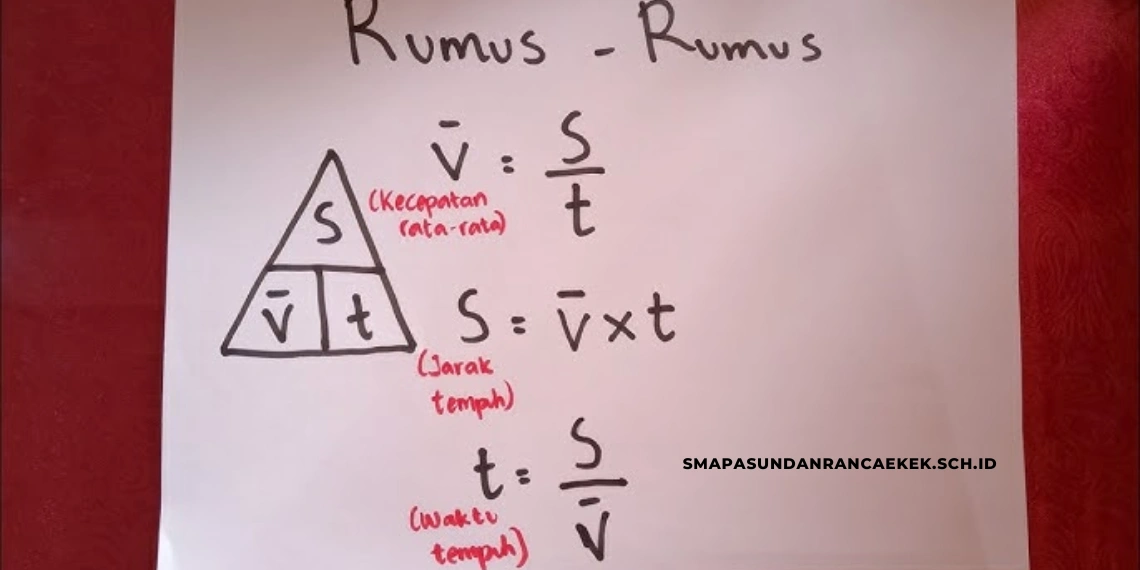 Rumus - Rumus
v̄ = S/t
(Kecepatan
rata-rata)
S
v̄ t
S = v̄ x t
(Jarak
tempuh)
t = S/v̄
(Waktu
tempuh)
SMAPASUNDANRANCAEKEK.SCH.ID